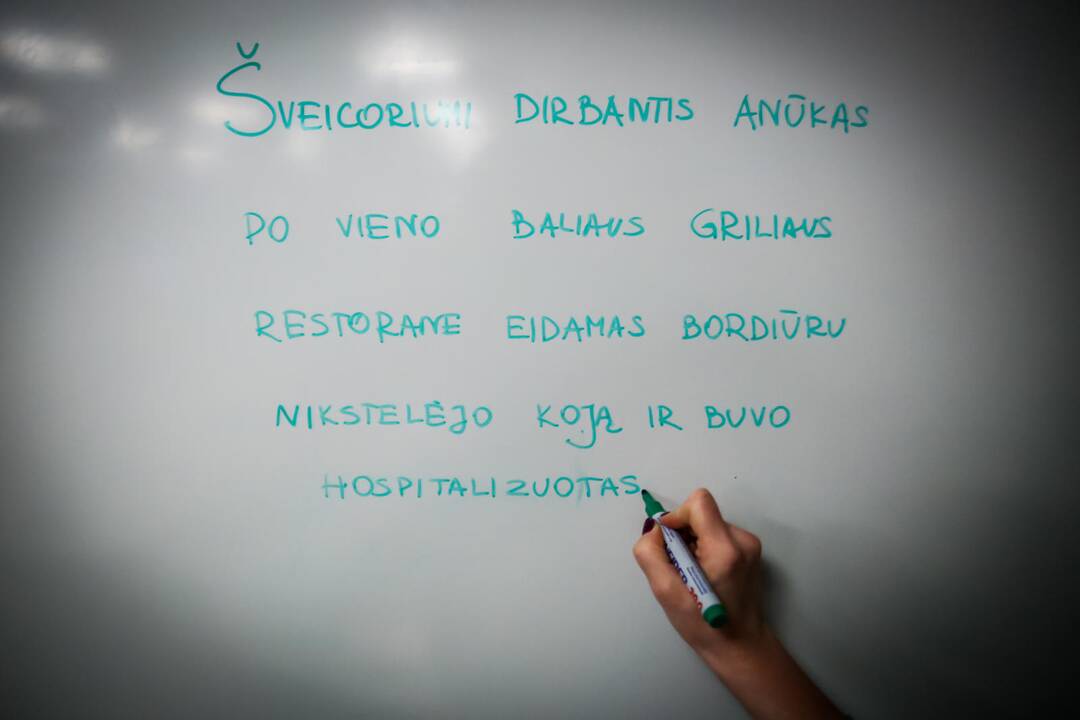 Šveicoriumi dirbantis anūkas
po vieno baliaus griliaus
restorane eidamas bordiūru
nikstelėjo koją ir buvo
hospitalizuotas